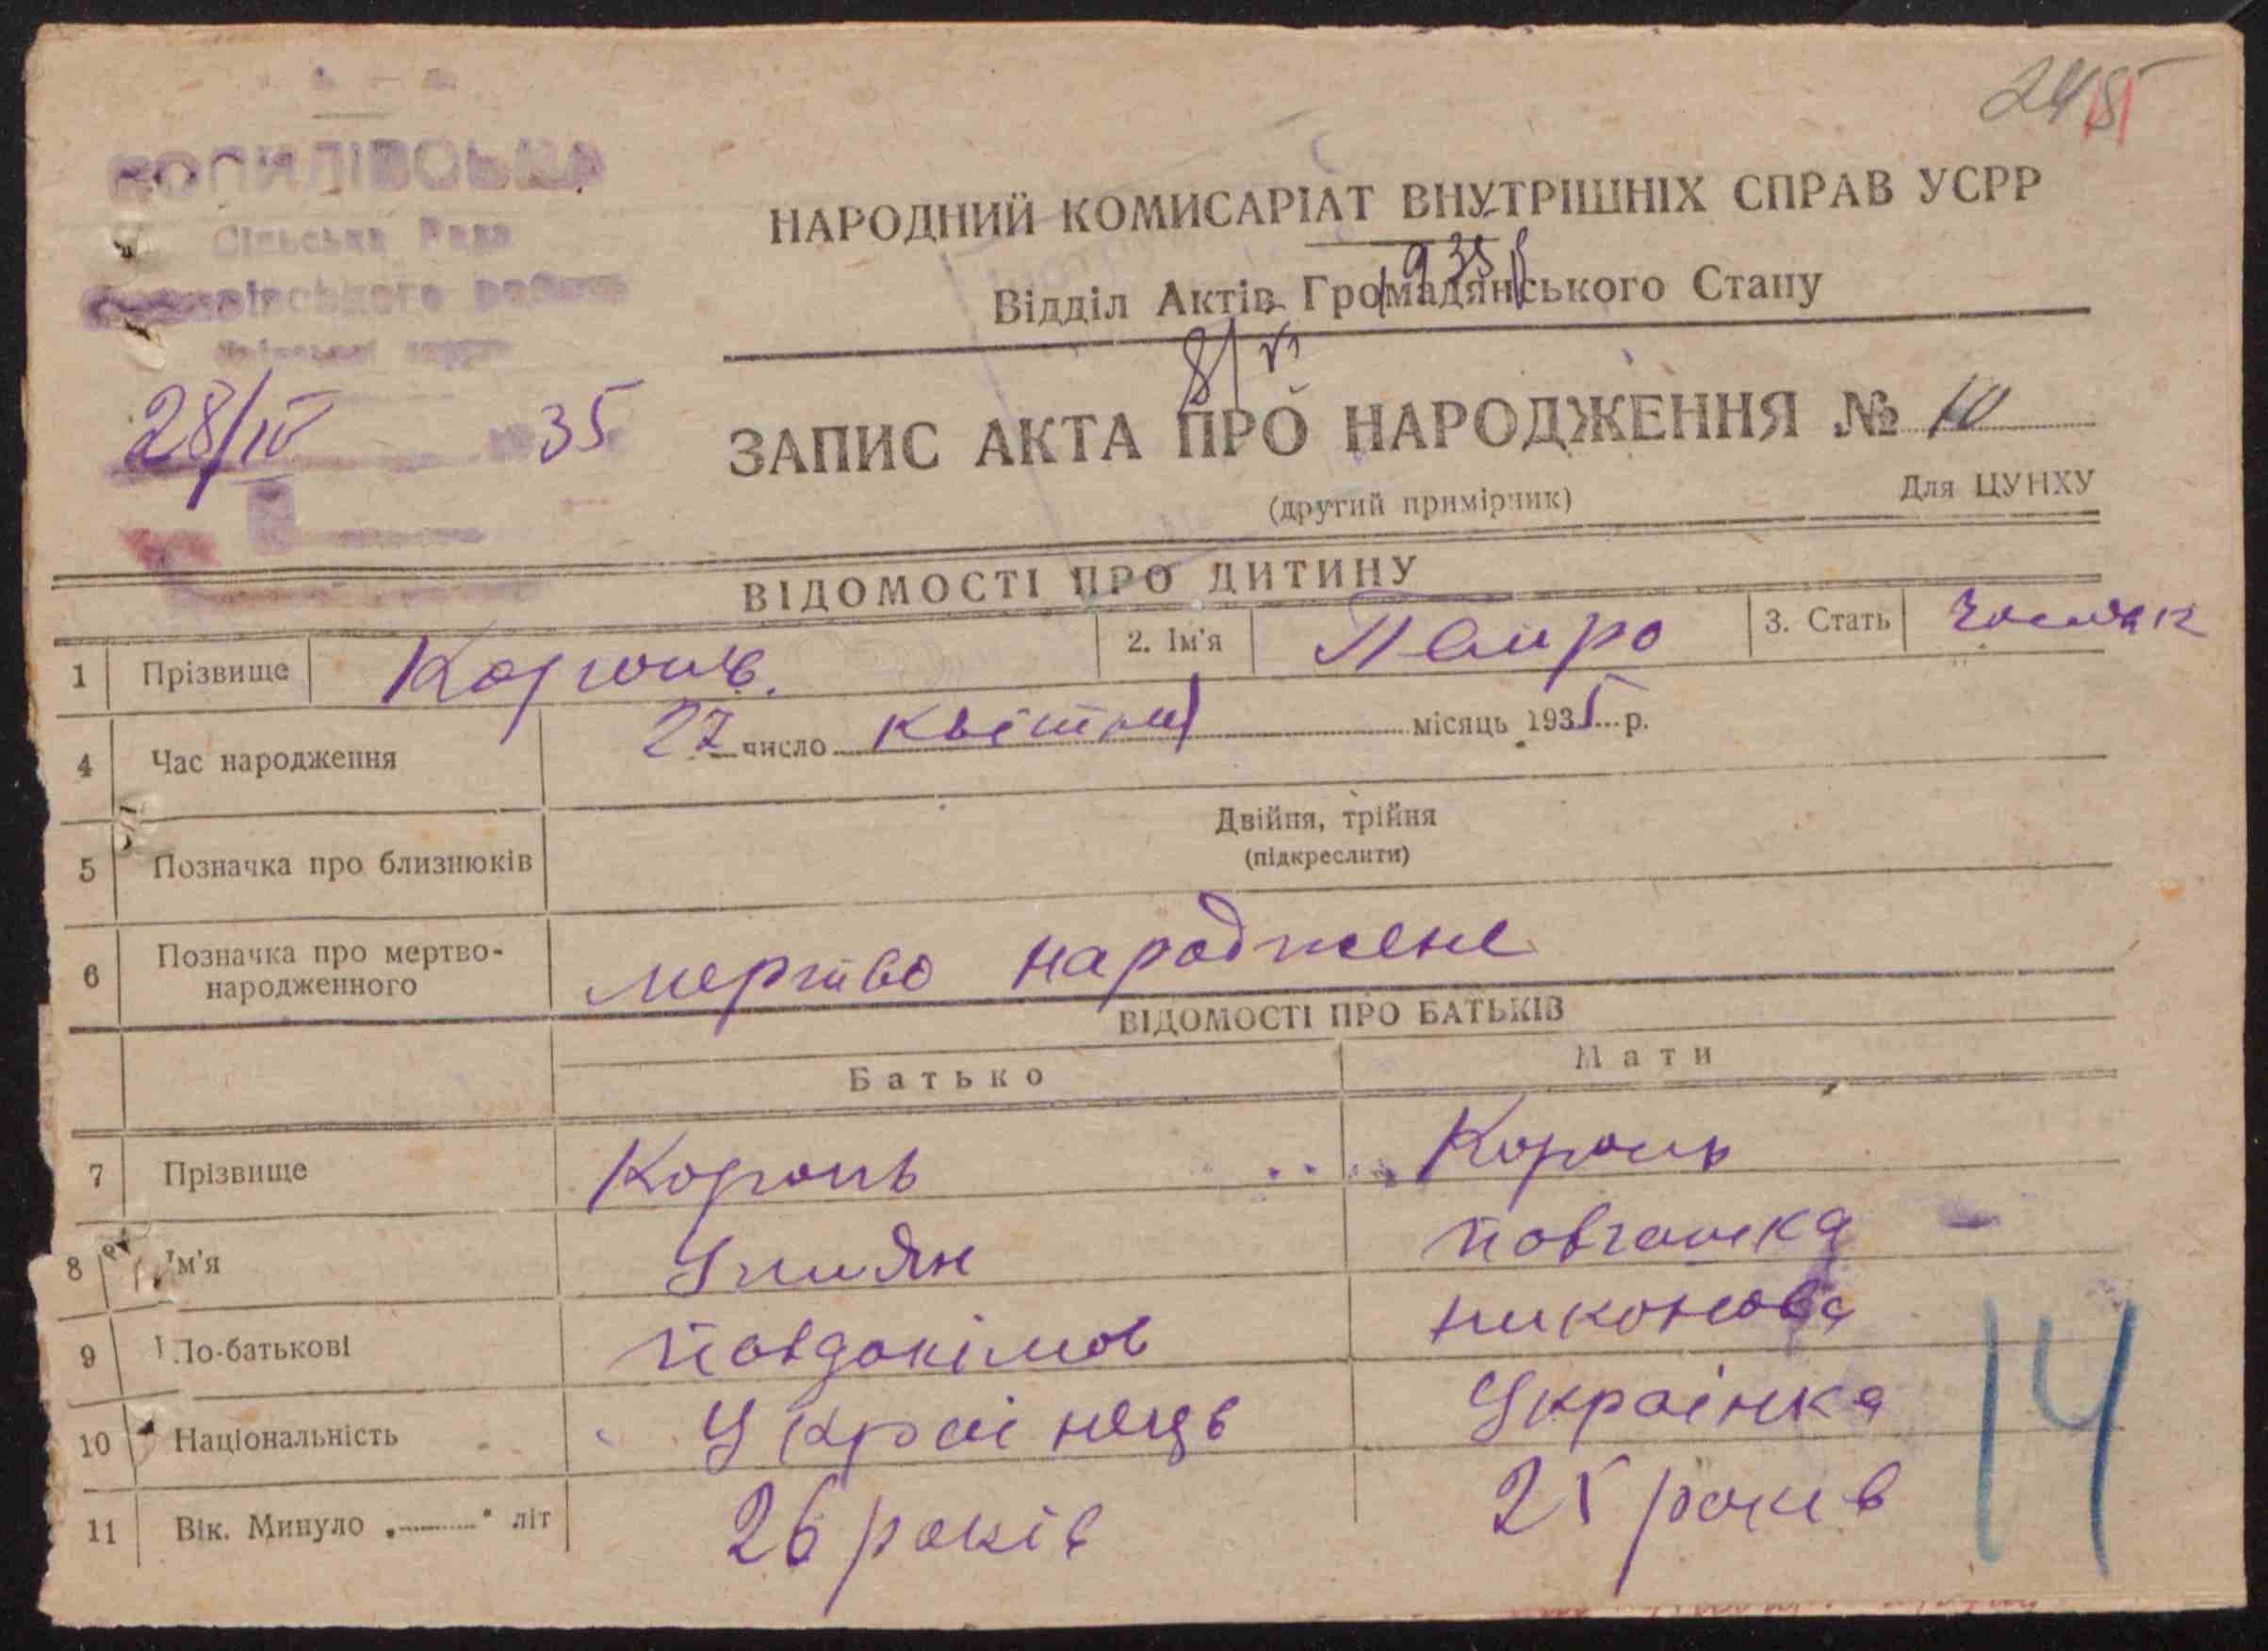 КОПИЛІВСЬКА
Сільська Рада
району
28/IV 1935
245
НАРОДНИЙ КОМИСАРІАТ ВНУТРІШНІХ СПРАВ УСРР
935
Відділ Актів Громадянського Стану
8/VI
ЗАПИС АКТА ПРО НАРОДЖЕННЯ № 10
(другий примірник)
Для ЦУНХУ
ВІДОМОСТІ ПРО ДИТИНУ
1 Прізвище Король 2. Ім'я Петро 3. Стать
4 Час народження 27 число квітня місяць 1935 р.
5 Позначка про близнюків Двійня, трійня
(підкреслити)
6 Позначка про мертво-
народженного мертво народжене
ВІДОМОСТІ ПРО БАТЬКІВ
Батько Мати
7 Прізвище Король Король
8 Ім'я
9 По-батькові Йовдокімов Никонова
10 Національність Українець Українка
11 Вік. Минуло „ “ літ 26 років 25 років
14